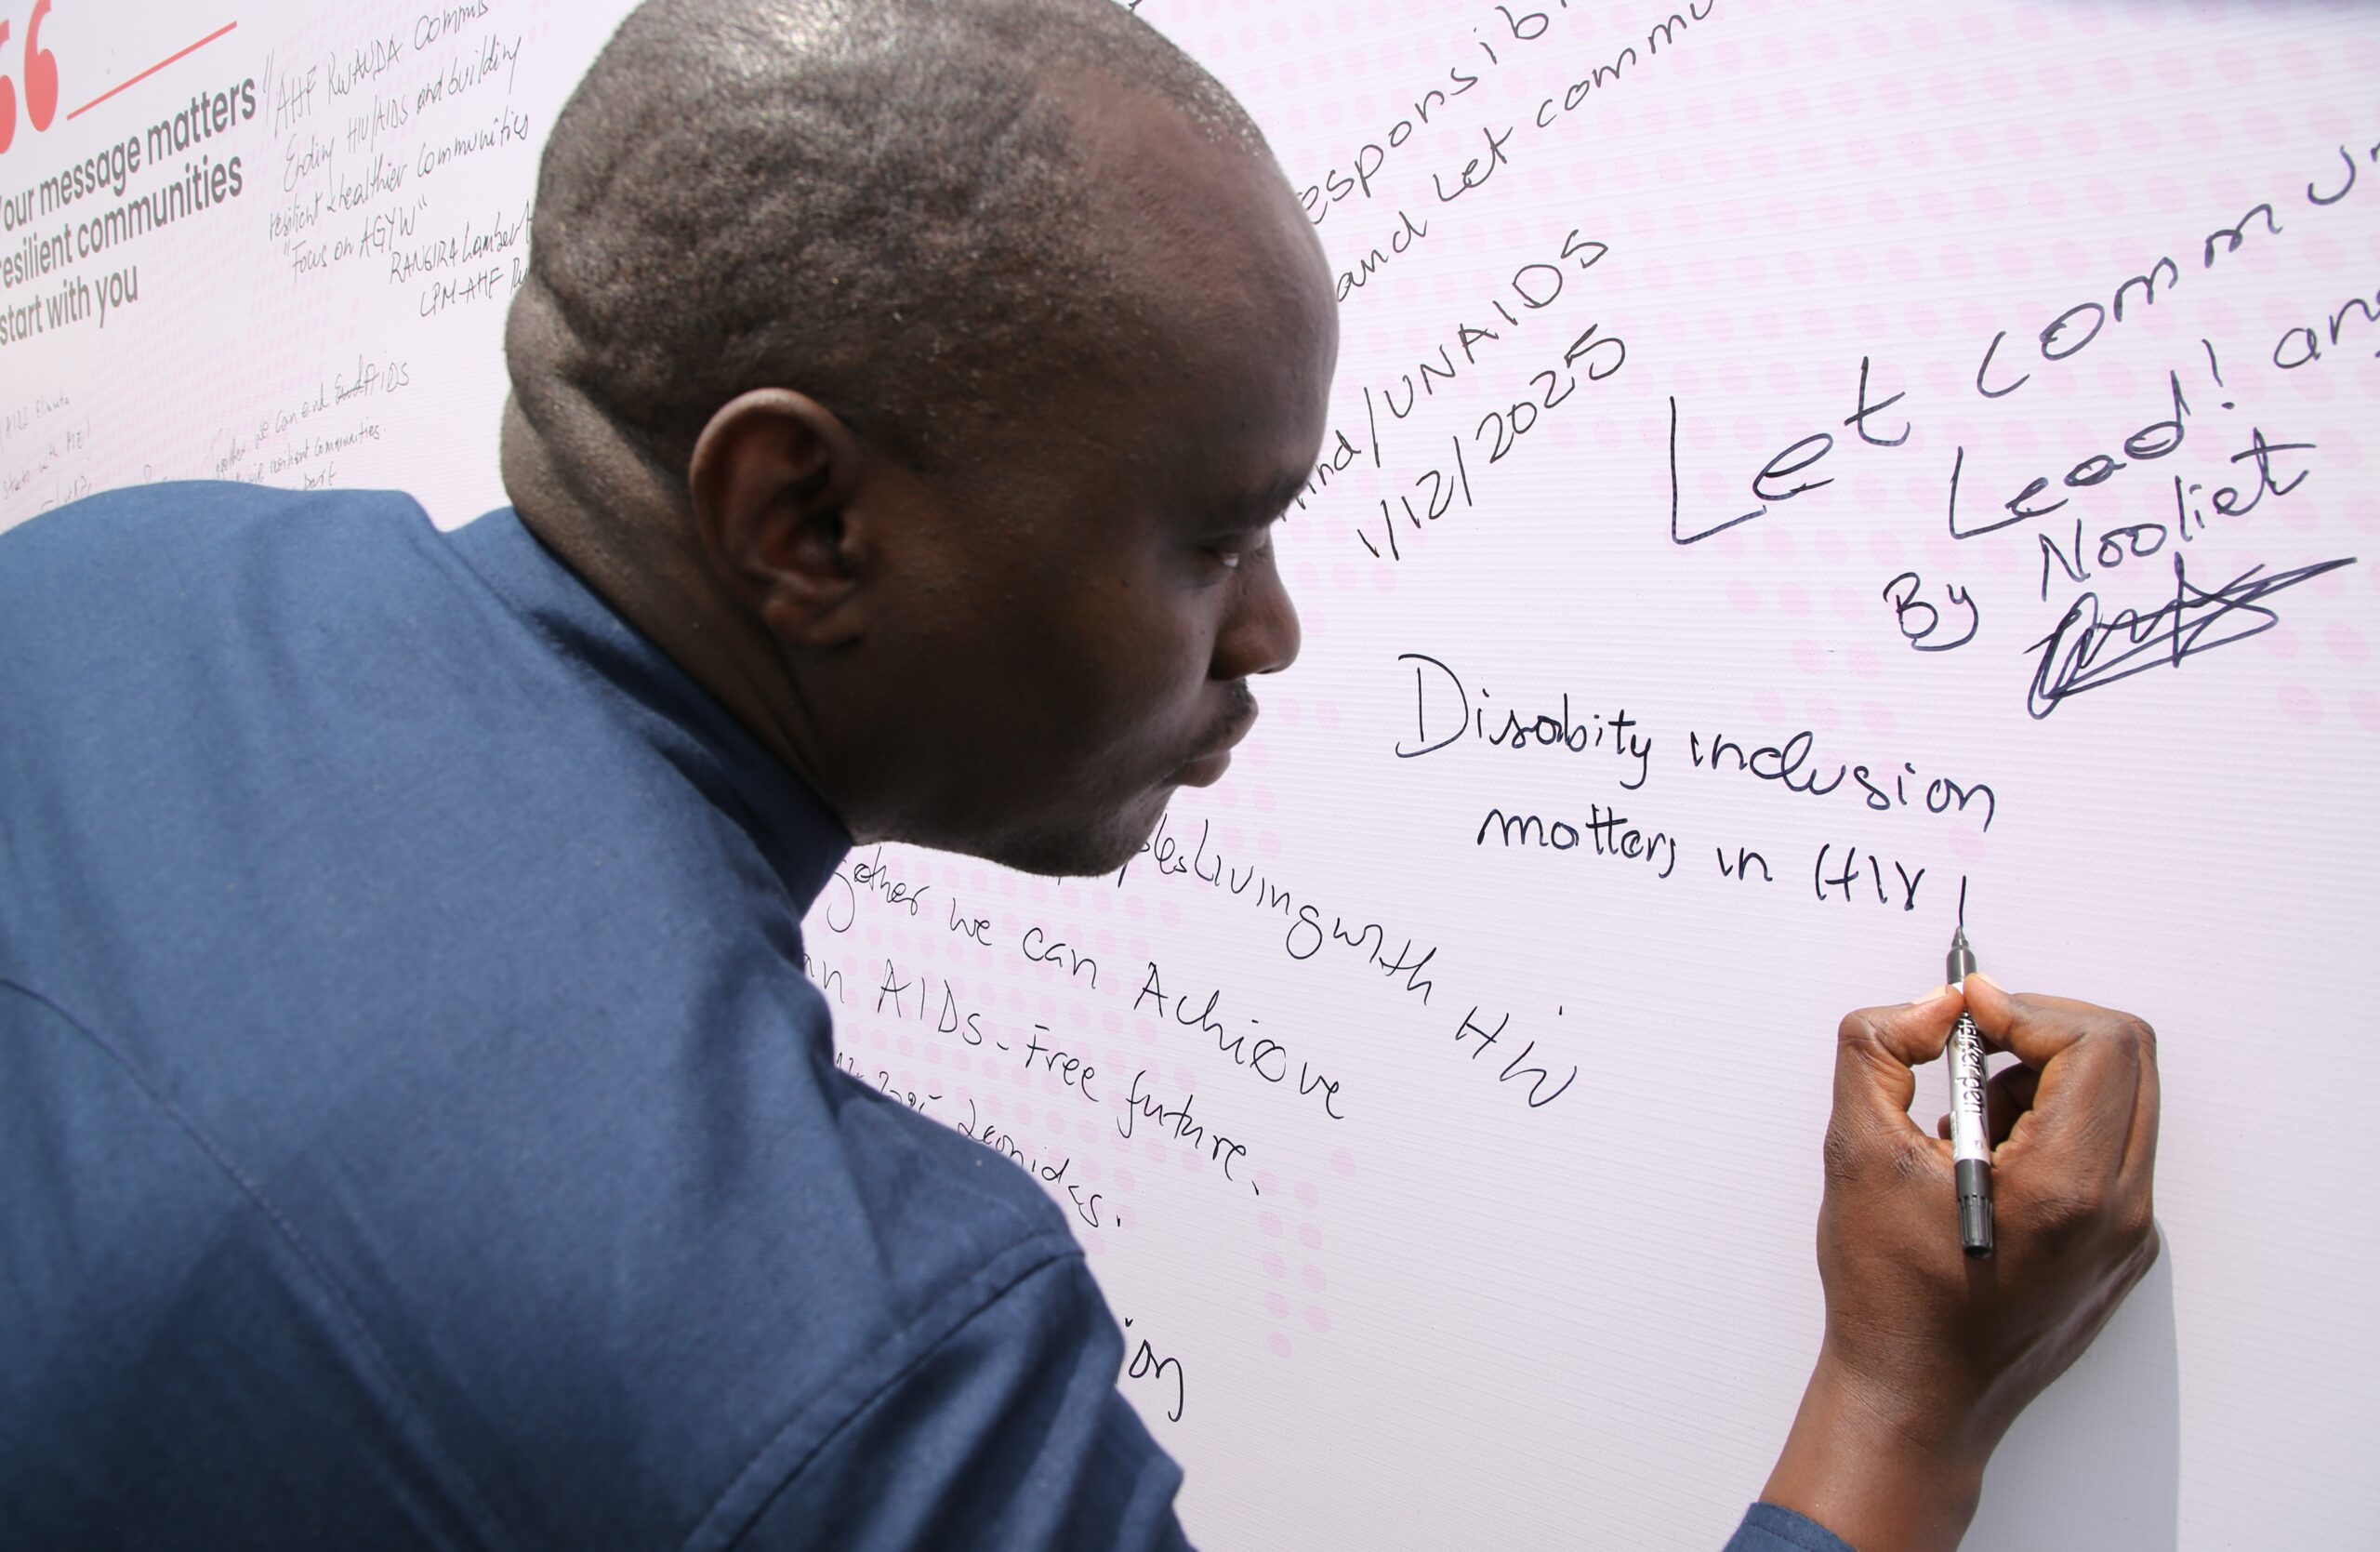 Your message matters
resilient communities
start with you
"AHF RWANDA Commi
Ending HIV/AIDS and building
resilient & healthier communities
"Focus on AGYW"
RANGIRA Lambert
LPM-AHF
Together we can end AIDS
resilient communities.
responsib
and Let commu
/UNAIDS
1/12/2025
Let commun
Lead! an
By Nooliet
Disabity inclusion
matters in HIV
Living with HIV
gether we can Achieve
an AIDs-Free future.
Leonidas.
ion
Marker pen